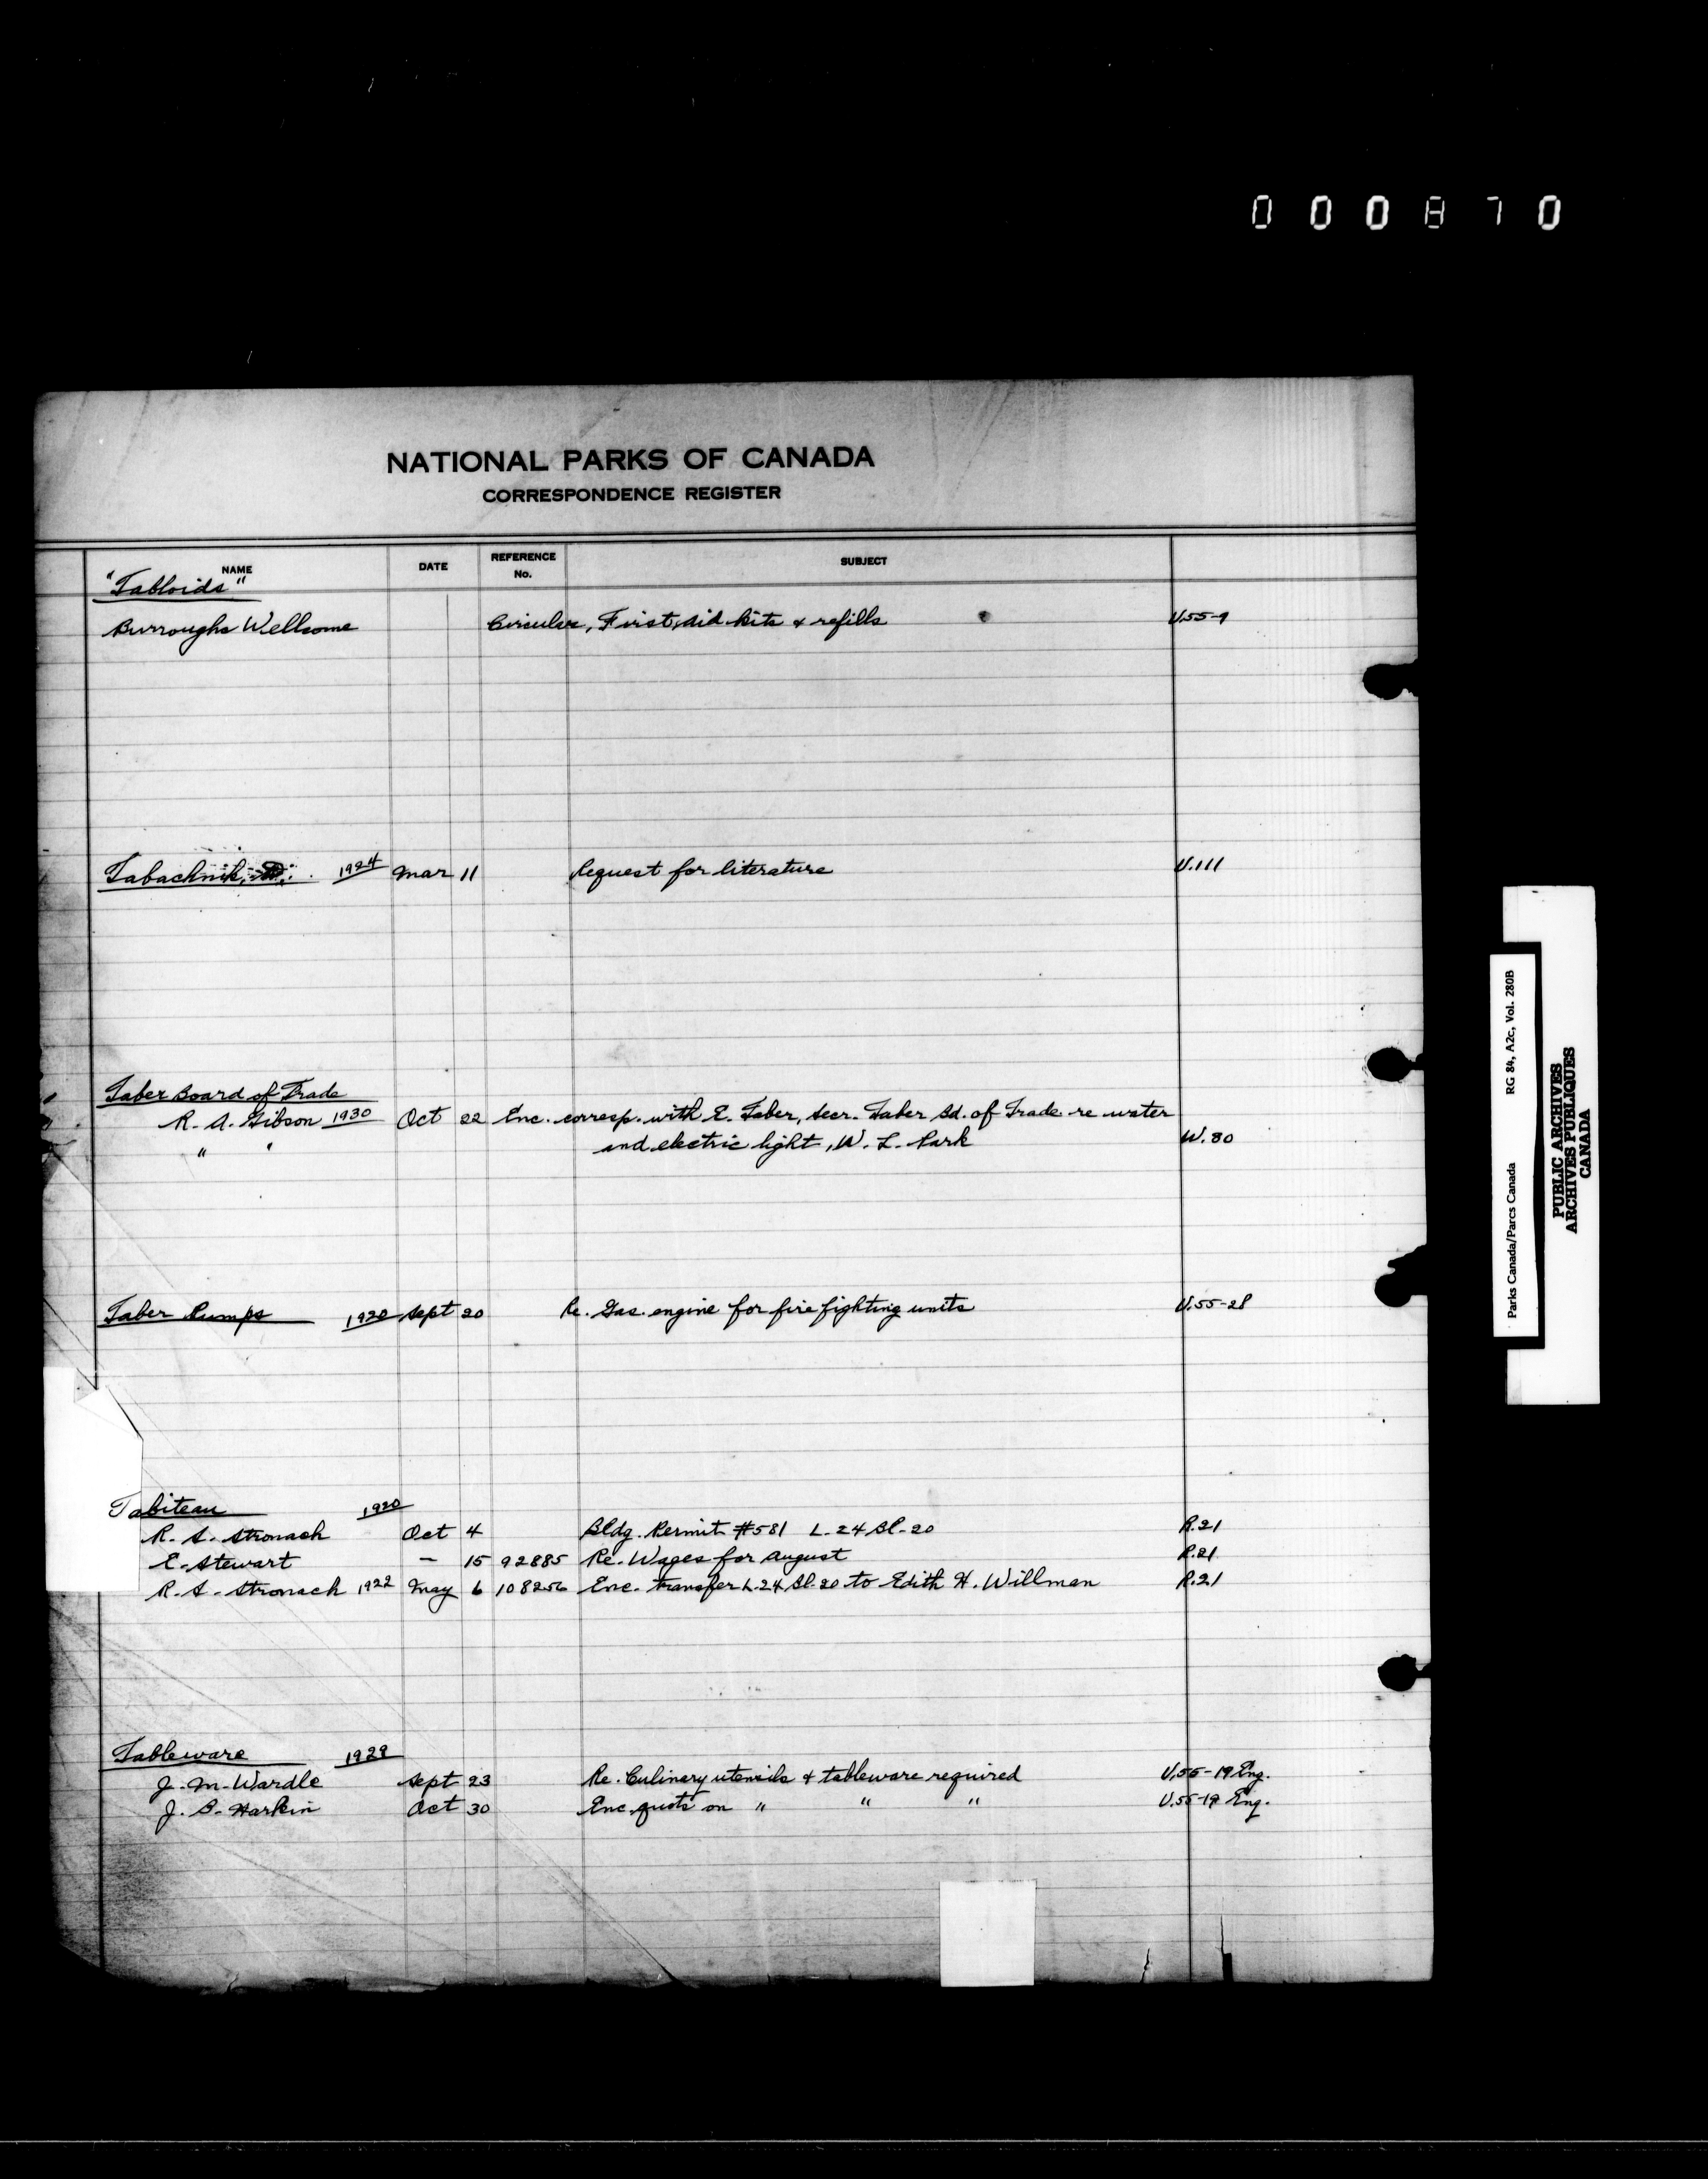 000870
NATIONAL PARKS OF CANADA
CORRESPONDENCE REGISTER
NAME DATE REFERENCE No. SUBJECT
"Tabloids"
Burroughs Wellcome Circular, First, aid kits & refills U.55-9
Tabachnik, 1924 Mar 11 Request for literature U.111
Taber Board of Trade
R. A. Gibson 1930 Oct 22 Enc. corresp. with E. Taber, Secr. Taber Bd. of Trade re water
" " and electric light, W. L. Park W.80
Taber Pumps 1920 Sept 20 Re. Gas. engine for fire fighting units U.55-28
Tabiteau 1920
R. S. Stronach Oct 4 Bldg. Permit #581 L-24 Bl-20 R.21
E. Stewart — 15 92885 Re. Wages for August R.21
R. S. Stronach 1922 May 6 108256 Enc. transfer L-24 Bl-20 to Edith H. Willman R.21
Tableware 1929
J. M. Wardle Sept 23 Re. Culinary utensils & tableware required U.55-19 Eng.
J. B. Harkin Oct 30 Enc. quots on " " " U.55-19 Eng.
Parks Canada/Parcs Canada RG 84, A2c, Vol. 280B
PUBLIC ARCHIVES
ARCHIVES PUBLIQUES
CANADA